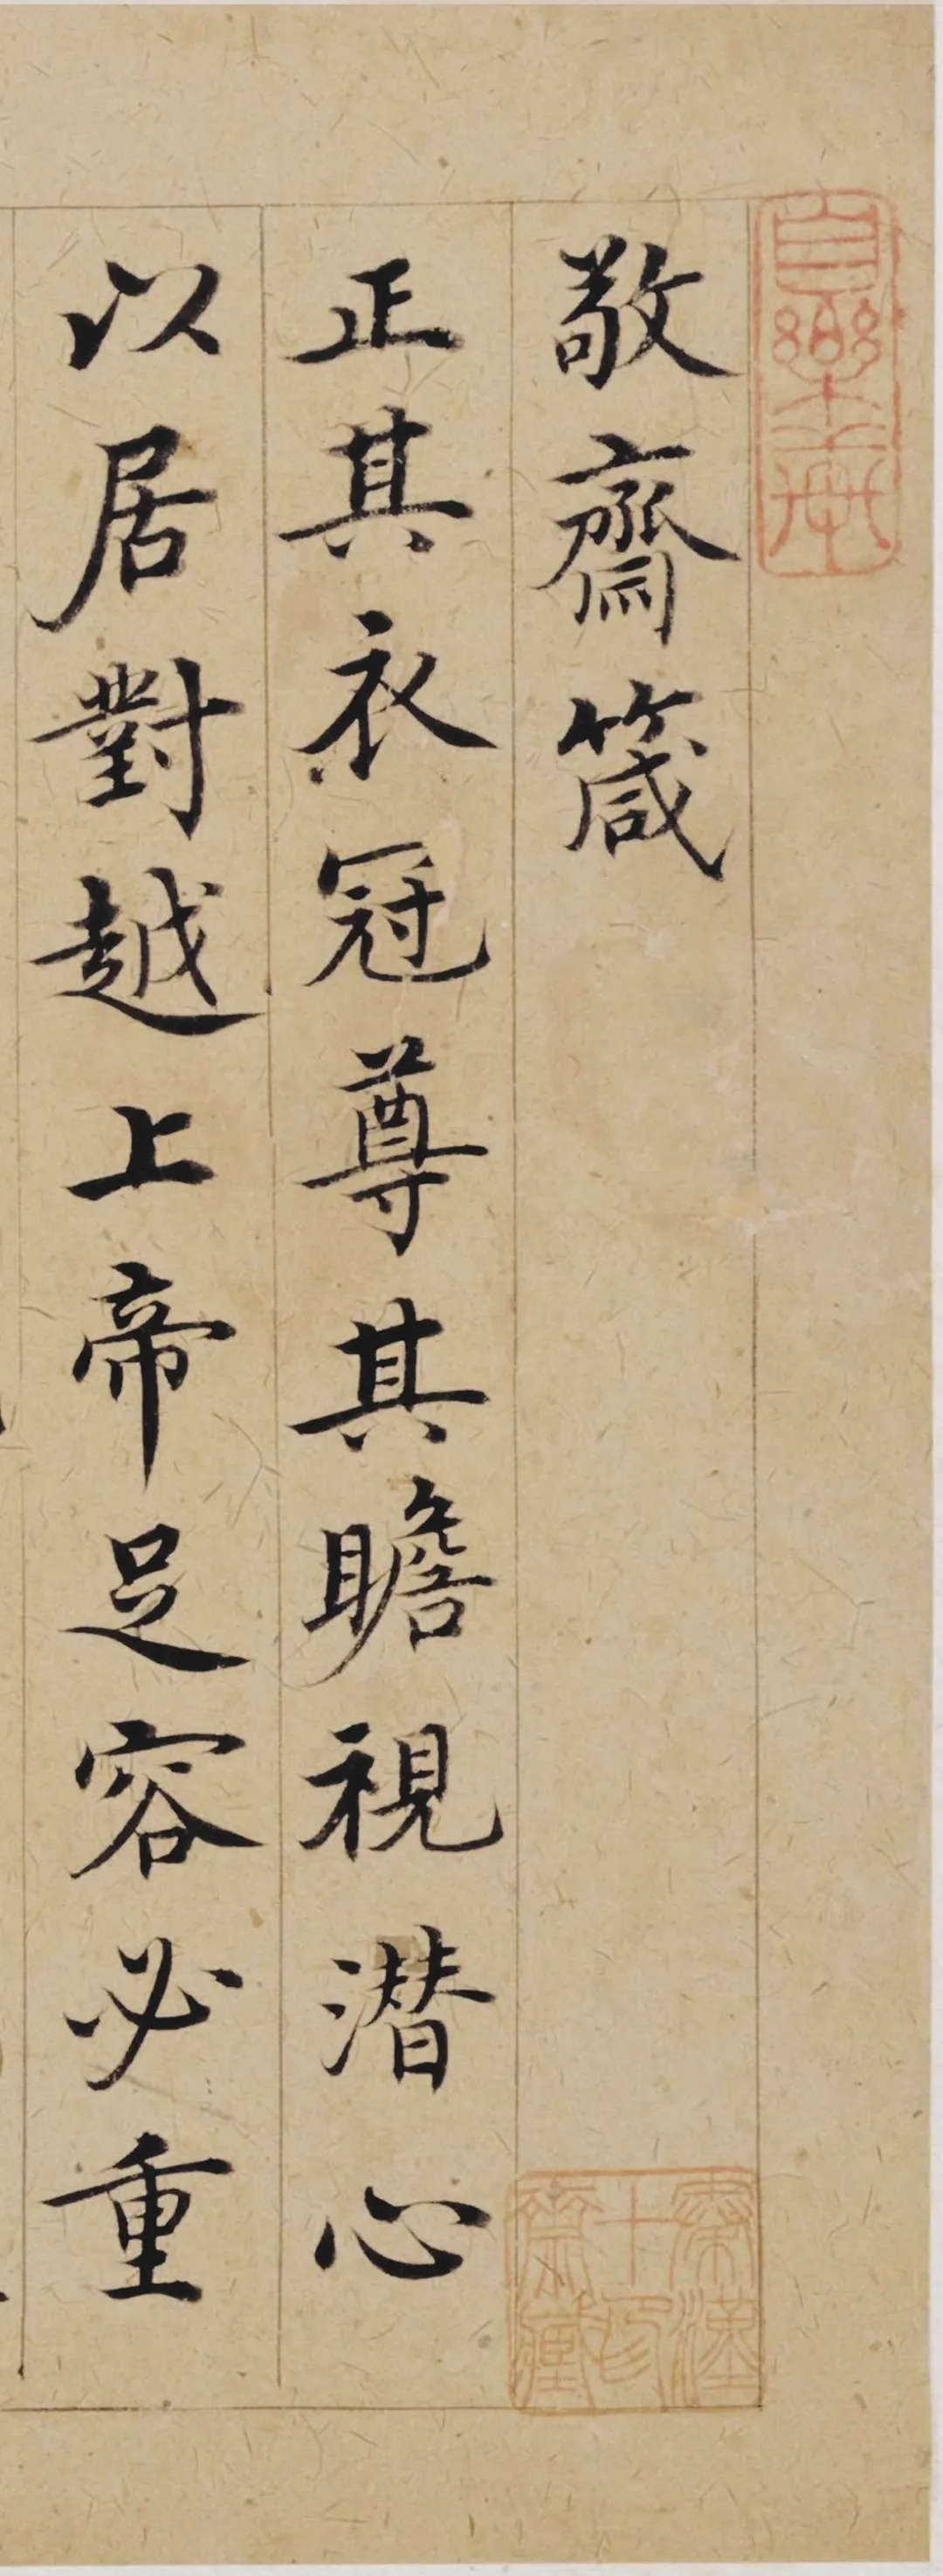 敬齋箴
正其衣冠尊其瞻視潜心
以居對越上帝足容必重